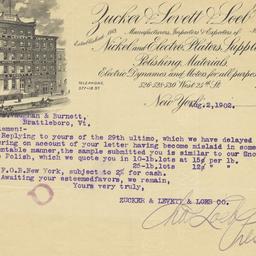 Zucker & Levett & Loeb
Established 1885
Manufacturers, Importers & Exporters of
Nickel and Electro Platers Supplies
Polishing Materials,
Electric Dynamos and Motors for all purposes
526-528-530 West 25th St.
TELEPHONE
377-18 ST
New York, Aug. 2, 1902.
Vaughan & Burnett,
Brattleboro, Vt.
lement:-
Replying to yours of the 29th ultimo, which we have delayed
ering on account of your letter having become mislaid in some
untable manner, the sample submitted you is similar to our
e Polish, which we quote you in 10-lb.lots at 15¢ per lb.
25-lb. lots 12½ " "
F.O.B.New York, subject to 2% for cash.
Awaiting your esteemedfavors, we remain,
Yours very truly,
ZUCKER & LEVETT & LOEB CO.
Loeb
Pres